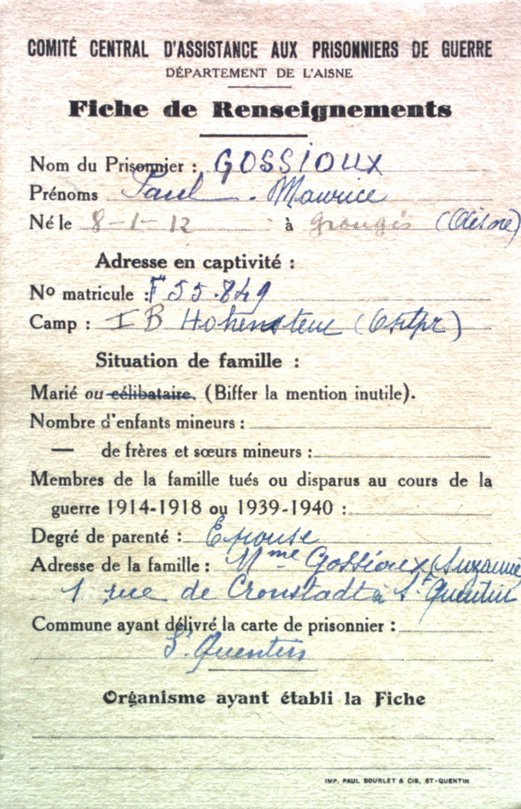 COMITÉ CENTRAL D'ASSISTANCE AUX PRISONNIERS DE GUERRE
DÉPARTEMENT DE L'AISNE
Fiche de Renseignements
Nom du Prisonnier : GOSSIOUX
Prénoms Paul - Maurice
Né le 8-1-12 à Grougis (Aisne)
Adresse en captivité :
No matricule : F 55.849
Camp : I B Hohenstein (Ostpr)
Situation de famille :
Marié ou célibataire. (Biffer la mention inutile).
Nombre d'enfants mineurs :
— de frères et sœurs mineurs :
Membres de la famille tués ou disparus au cours de la
guerre 1914-1918 ou 1939-1940 :
Degré de parenté : Epouse
Adresse de la famille : Mme Gossioux (Suzanne
1 rue de Cronstadt à St Quentin
Commune ayant délivré la carte de prisonnier :
St Quentin
Organisme ayant établi la Fiche
IMP. PAUL BOURLET & CIE, ST-QUENTIN